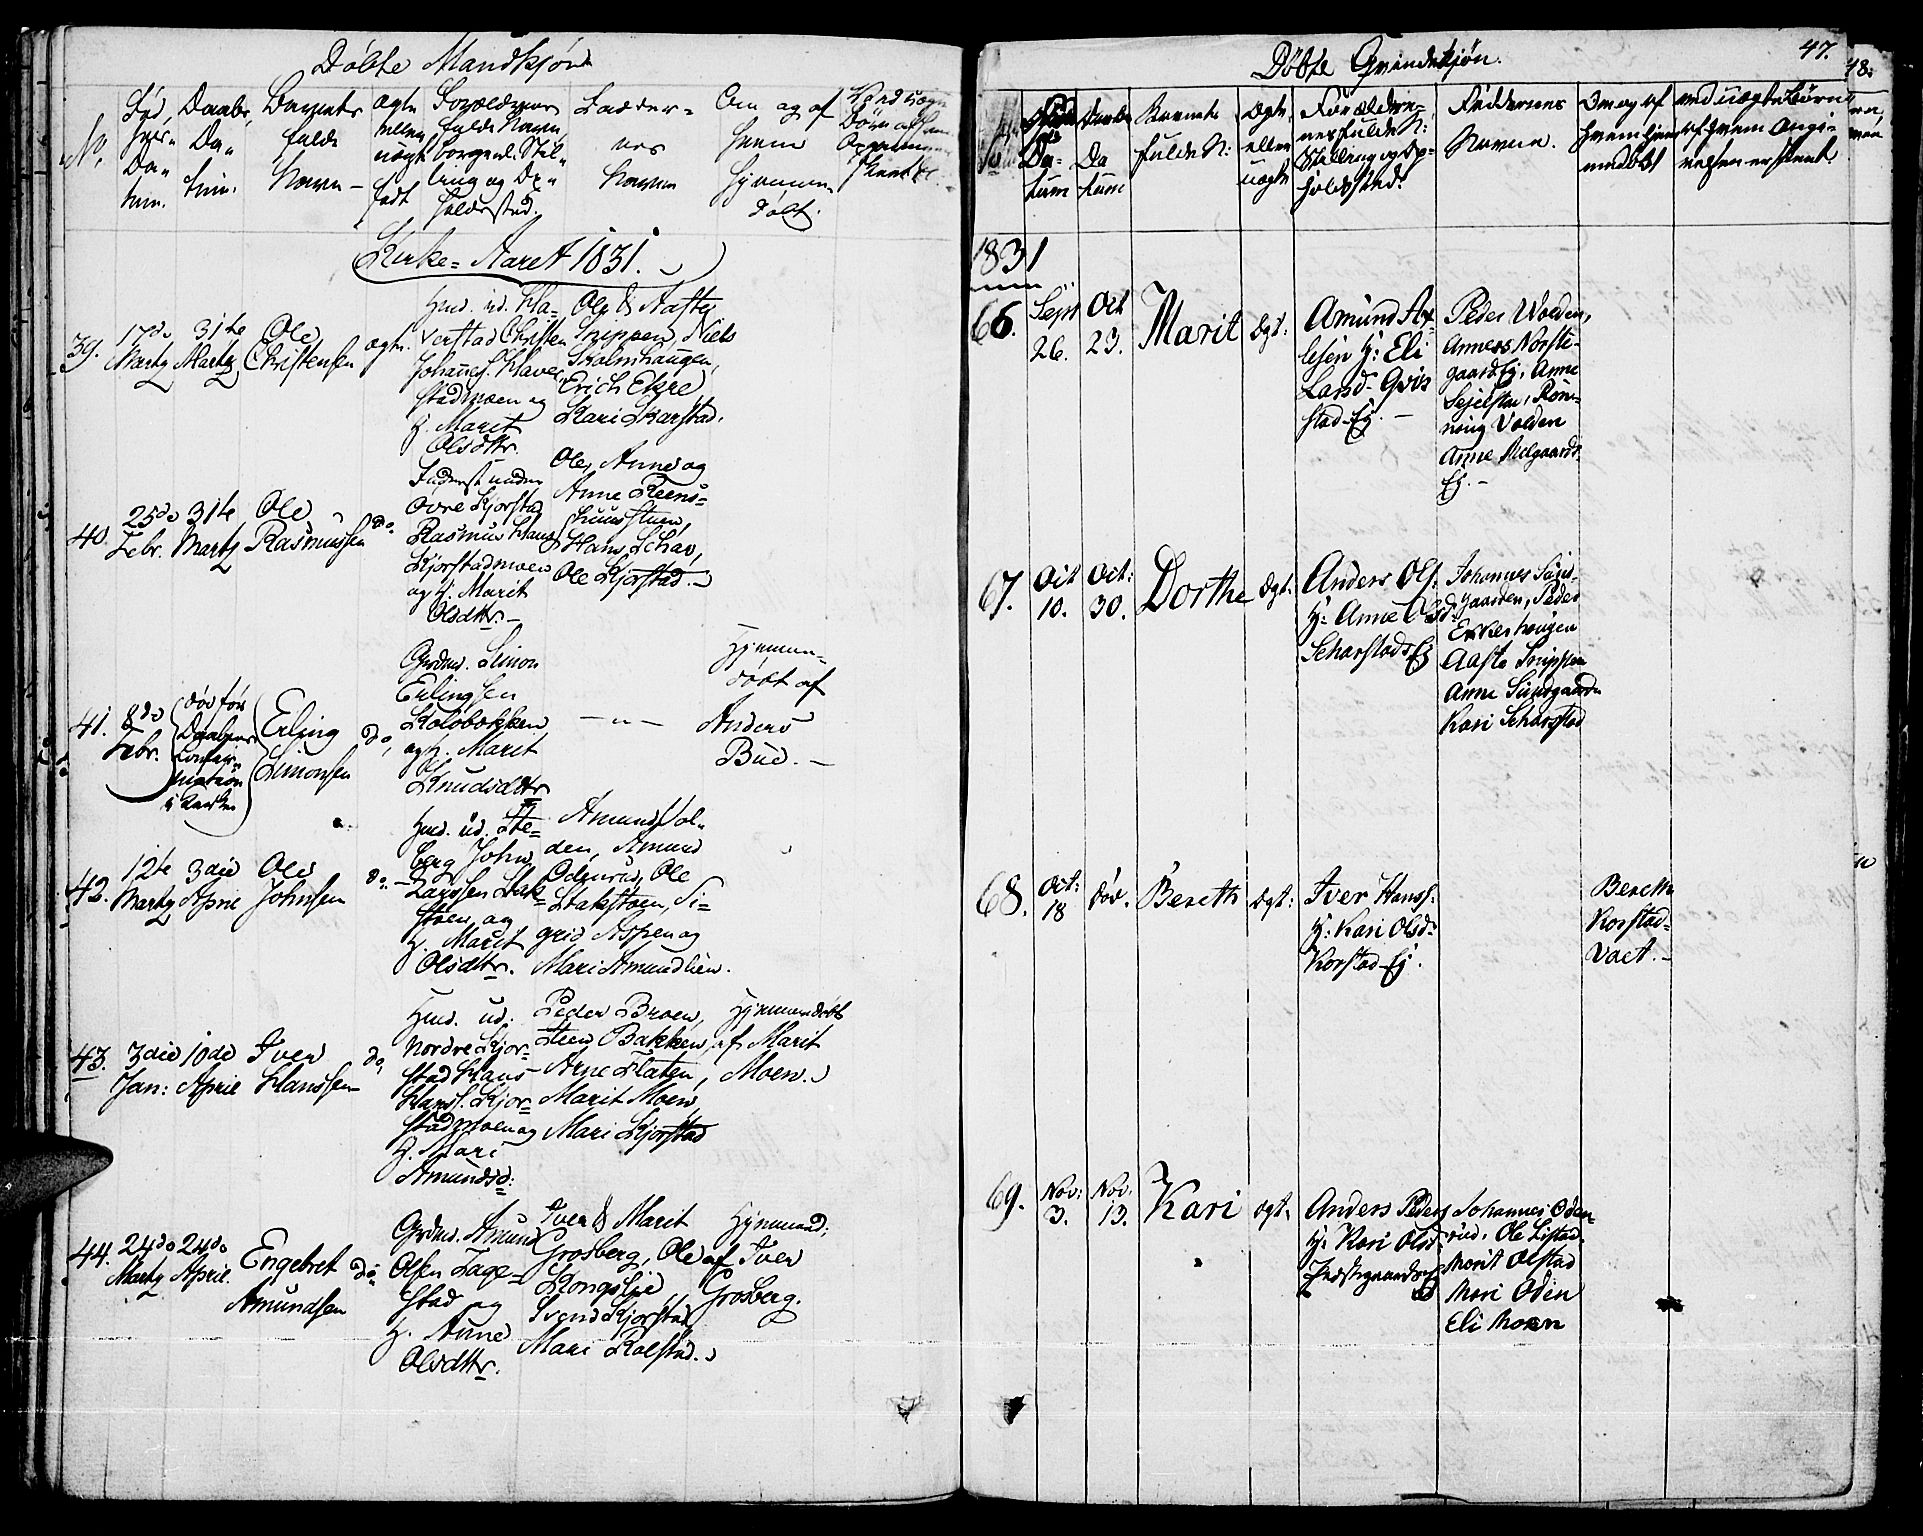 Døbte Mandkjøn
No,
Fød,
Da=
tum.
Daabs,
Da=
tum.
Barnets
fulde
Navn –
ægte
eller
uægte
født
Forældrenes
fulde Navne,
borgerl. Stil=
ling og Op=
holdssted.
Fadder=
nes
Navne
Om og af
hvem
hjemme=
døbt.
Kirke=Aaret 1831.
39.
17de
Martz
31te
Martz
Ole
Christensen
ægte.
Christen
Johannes.
og
H. Marit
Olsdttr.
Ole & Aaste
Snippen, Niels
Skalmhaugen,
Erich Ekre
Kari Skarstad.
40.
25de
Febr.
31te
Martz
Ole
Rasmussen
do,
Inderst under
øvre Kjorstad
Rasmus Hans
Kjorstadmoen
og H. Marit
Olsdttr. –
Ole, Anne og
Anne
Hans Schar,
Ole Kjorstad. –
41.
8de
Febr.
død før
Daabens
Confir=
mation
i Kirken
Erling
Simonsen
do,
Grdmd. Simon
Erlingsen
Kolobakken
og H. Marit
Knudsdttr
– " –
Hjemme=
døbt af
Anders
Bue. –
42.
12te
Martz
3die
April
Ole
Johnsen
do. –
Hmd. ud. Ste=
berg John
Larssen Stak=
stoen, og
H. Marit
Olsdttr.
Amund Vol=
den, Amund
Odenrud, Ole
Stakstoen, Si=
grid Aspen og
Mari Amundlien.
43.
3die
Jan:
10de
April
Iver
Hanssen
do,
Hmd. ud.
Nordre Kjor=
stad Hans
Hans. Kjor=
stadmoen og
H. Mari
Amundsd:
Peder Broen,
Steen Bakken,
Arne Flaten,
Marit Moen
Mari Kjorstad
Hjemmedøbt
af Marit
Moen.
44.
24de
Martz
24de
April.
Engebret
Amundsen
do
Grdmd. Amund
Olsen Lage=
stad og
H. Anne
Olsdttr.
Iver & Marit
Grosberg, Ole
Kongslie,
Svend Kjorstad
Mari Rolstad.
Hjemmed.
af Iver
Grosberg.
Døbte Qvindekjøn.
47.
48.
Da=
tum
Daabs
Da
tum
Barnets
fulde N:
Ægte
eller
uægte
Forældre=
nes fulde N:
Stilling og Op=
holdsted.
Faddernes
Navne.
Om og af
hvem hjem=
medøbt
ved uægte Børn
af hvem Angi=
velsen er skeet
1831
66.
Sept
26.
Oct
23.
Marit
ægt.
Amund Ax=
elsen H: Eli
Larsd. Qvis
stad-Ej. –
Peder Wolden,
Anners Norste=
gaard Ej, Anne
Sejelstad, Røn=
noug Volden
Anne Nilgaards
Ej. –
67.
Oct
10.
Oct:
30.
Dorthe
Ægt.
Anders Ols.
H: Anne Olsd:
Scharstads Ej
Johannes Sund=
gaarden, Peder
Ekkerhougen
Aaste Snippen
Anne Sundgaarden
Kari Scharstad
68.
Oct:
18
død.
Bereth
Ægt:
Iver Hanss:
H: Kari Olsd:
Korstad-Ej.
Bereth
Korstad=
vaet. –
69.
Nov:
3.
Nov.
13.
Kari
Ægt.
Anders Peders
H: Kari Olsd.
Johannes Oden=
rud. Ole Listad.
Marit Olstad
Mari Oden
Eli Moen